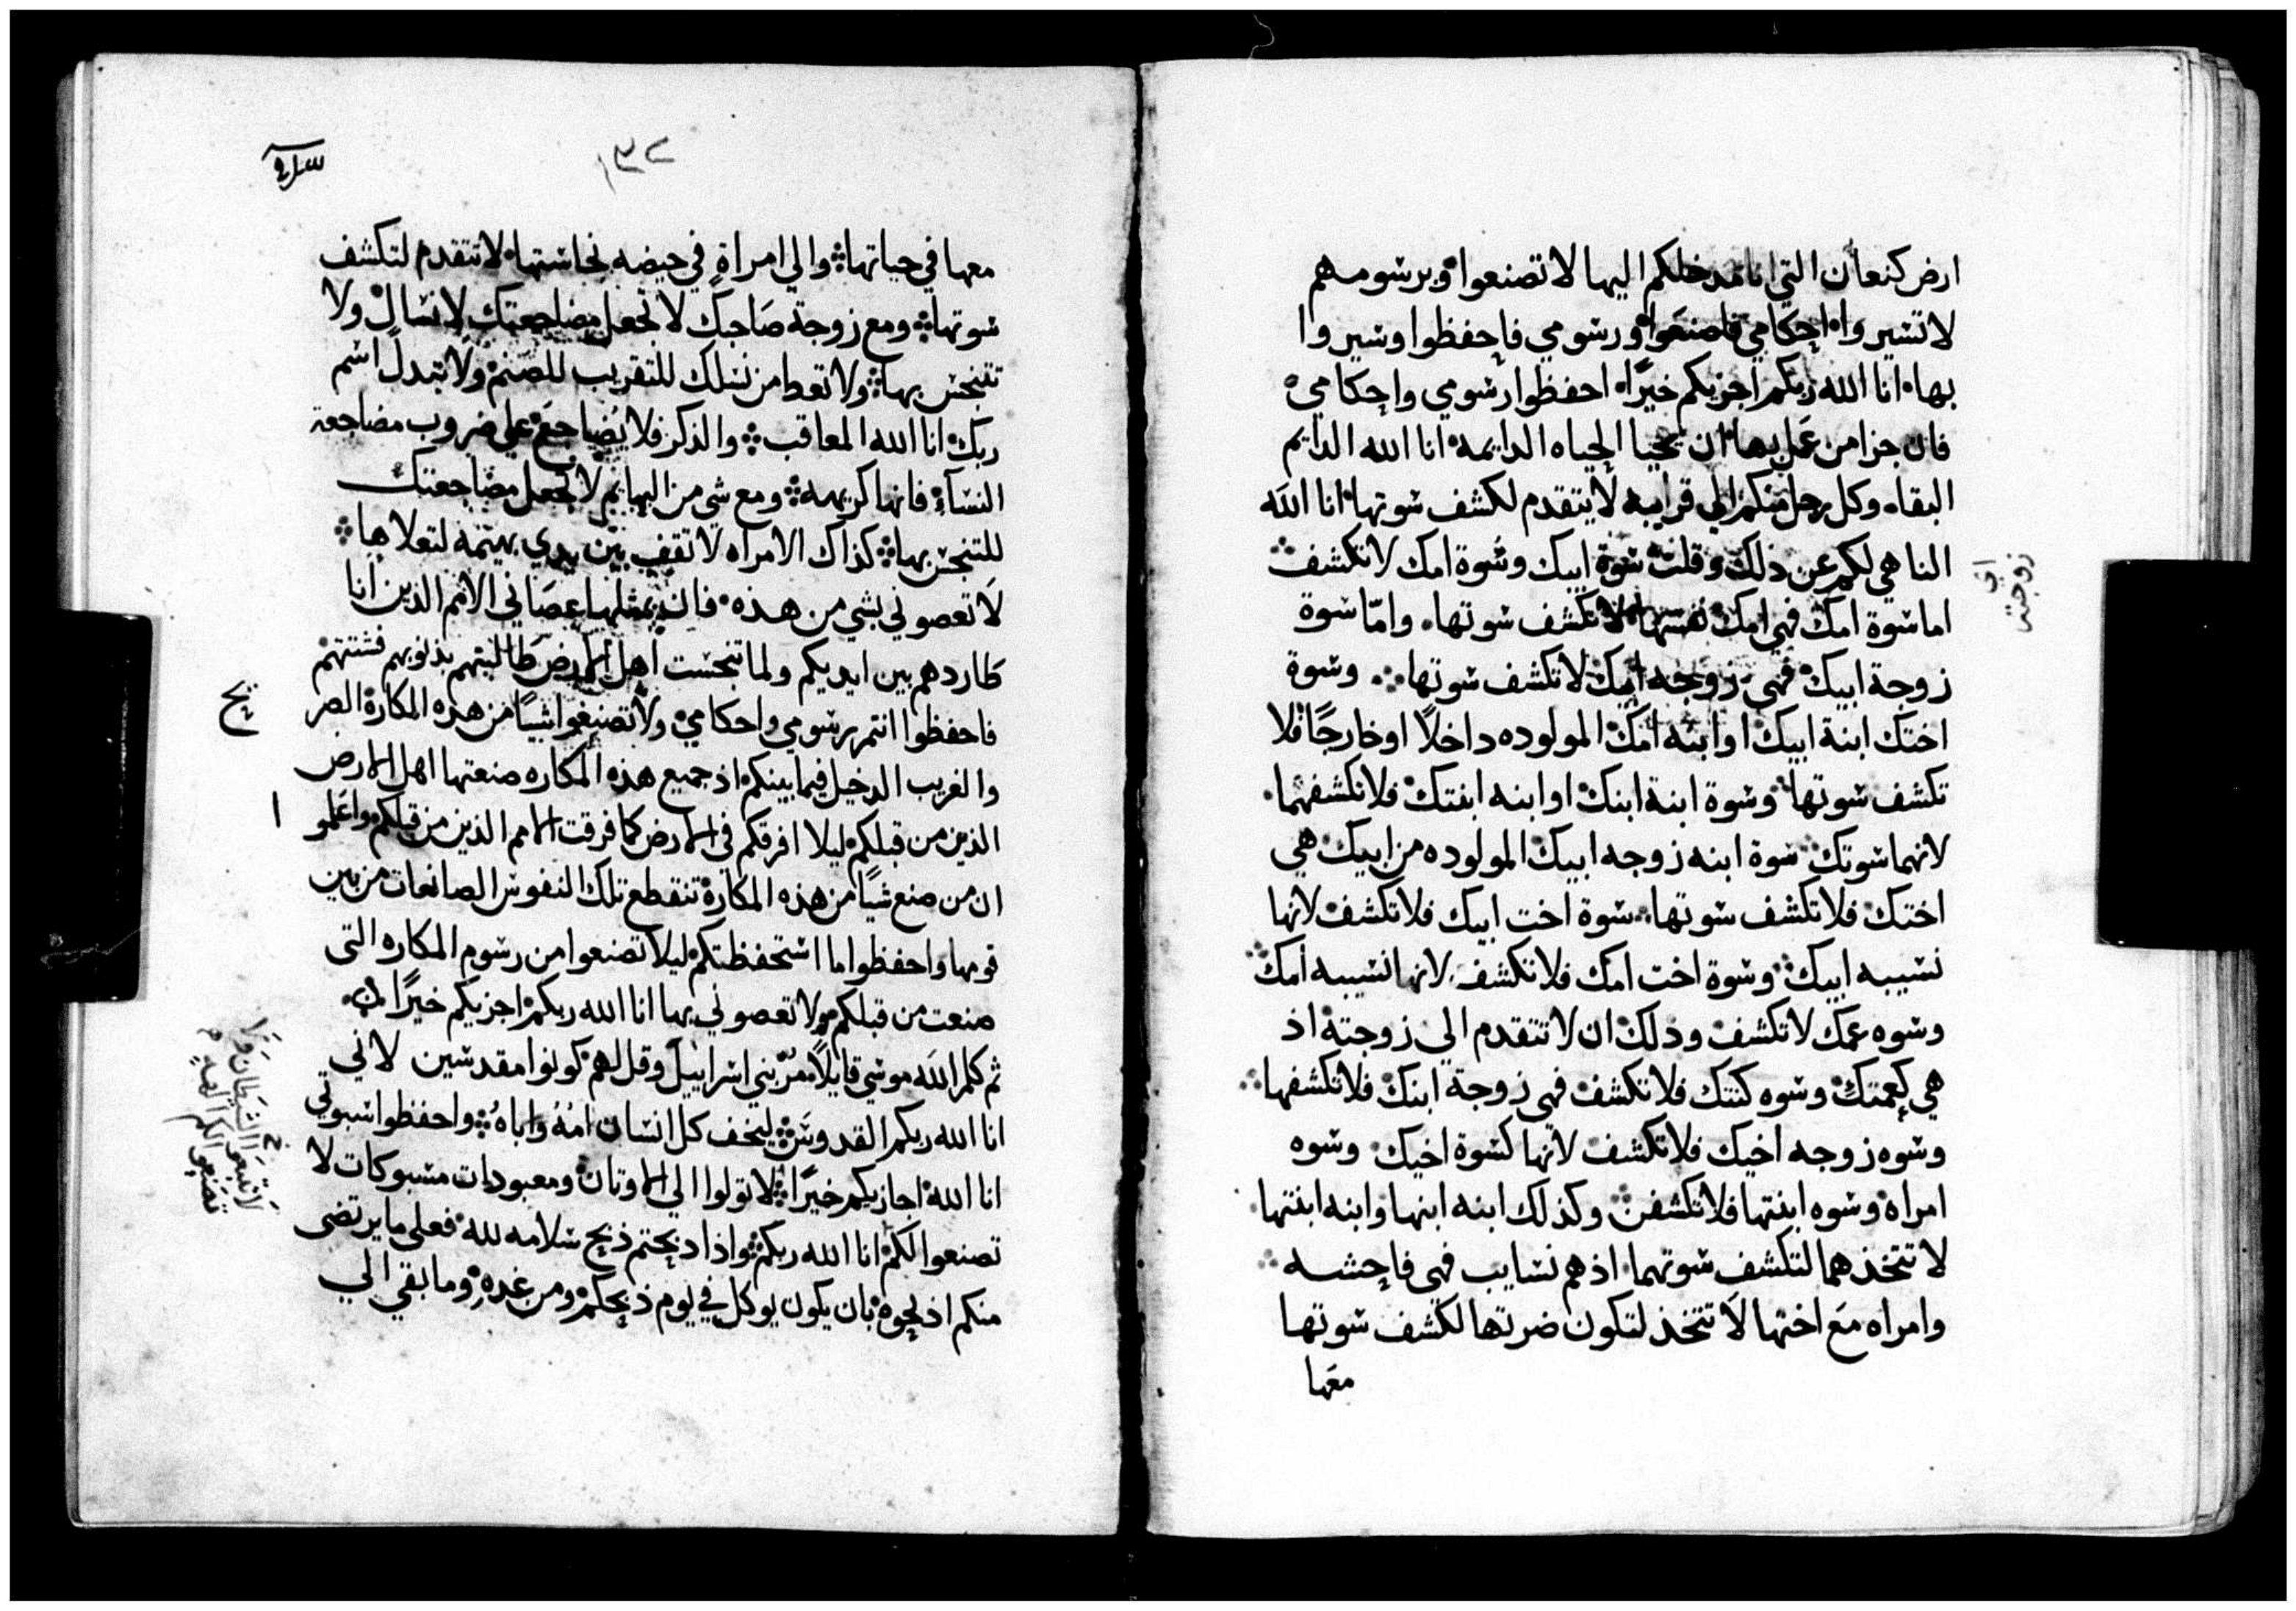 ارض كنعان التي انا مدخلكم اليها لا تصنعوا وبرسومهم
لا تسيروا احكامي فاصنعوا ورسومي فاحفظوا وسيروا
بها انا الله ربكم اجزيكم خيرًا احفظوا رسومي واحكامي
فان جزا من عمل بها ان يحيا الحياه الدايمه انا الله الدايم
البقاء وكل رجل منكم الي قرابه لا يتقدم لكشف سوتها انا الله
الناهي لكم عن ذلك وقلت سوة ابيك وسوة امك لا تكشف
اما سوة امك فهي امك نفسها لا تكشف سوتها وامّا سوة
زوجة ابيك فهي زوجه ابيك لا تكشف سوتها وسوة
اختك ابنة ابيك او ابنه امك المولوده داخلًا او خارجًا فلا
تكشف سوتها وسوة ابنة ابنك او ابنه ابنتك فلا تكشفهما
لانهما سوتك سوة ابنه زوجه ابيك المولوده من ابيك هي
اختك فلا تكشف سوتها سوة اخت ابيك فلا تكشف لانها
نسيبه ابيك وسوة اخت امك فلا تكشف لانها نسيبه امك
وسوه عمك لا تكشف وذلك ان لا تتقدم الي زوجتة اذ
هي كعمتك وسوه كنتك فلا تكشف فهي زوجة ابنك فلا تكشفها
وسوه زوجه اخيك فلا تكشف لانها كسوة اخيك وسوه
امراة وسوه ابنتها فلا تكشف وكذلك ابنه ابنها وابنه ابنتها
لا تتخذهما لتكشف سوتهما اذ هم نسايب فهي فاحشه
وامراه مع اختها لا تتخذ لتكون ضرتها لكشف سوتها
معها
معها في حياتها والي امراة في حيضه نجاستها لا تتقدم لتكشف
سوتها ومع زوجة صاحبك لا تجعل مضاجعتك لانسال ولا
تتنجس بها ولا تعط من نسلك للتقريب للصنم ولا تبدل اسم
ربك انا الله المعاقب والذكر فلا يضاجع علي ضروب مضاجعة
النسآء فانها كريهه ومع شي من البهايم لا تجعل مضاجعتك
للتنجس بها كذاك الامراه لا تقف بين يدي بهيمه لتعلاها
لا تعصوني بشي من هذه فان بمثلها عصاني الامم الذين انا
طاردهم بين ايديكم ولما تنجست اهل الارض طالبتهم بذنوبهم فشتتهم
فاحفظوا انتم رسومي واحكامي ولا تصنعوا شيًا من هذه المكارة الصر
يح
والغريب الدخيل فيما بينكم اذ جميع هذه المكاره صنعتها اهل الارض
الذين من قبلكم ليلا افرقكم في الارض كما فرقت الامم الذين من قبلكم واعلمو
ا
ان من صنع شيًا من هذه المكارة تنقطع تلك النفوس الصانعات من بين
قومها واحفظوا ما استحفظتكم ليلا تصنعوا من رسوم المكاره التى
صنعت من قبلكم ولا تعصوني بها انا الله ربكم اجزيكم خيرًا
ثم كلم الله موسي قايلًا مر بني اسراييل وقل لهم كونوا مقدسين لاني
انا الله ربكم القدوس ليخف كل انسان امهُ واباهُ واحفظوا سبوتي
انا الله اجازيكم خيرًا لا تولوا الي الاوتان ومعبودات مسبوكات لا
تصنعوا لكم انا الله ربكم واذا ذبحتم ذبح سلامه لله فعلي ما يرتضى
منكم اذبحوه بان يكون يوكل في يوم ذبحكم ومن غدهِ وما بقي الي
لا تتبعو الشيطان ولا
تصنعو لكم الهه